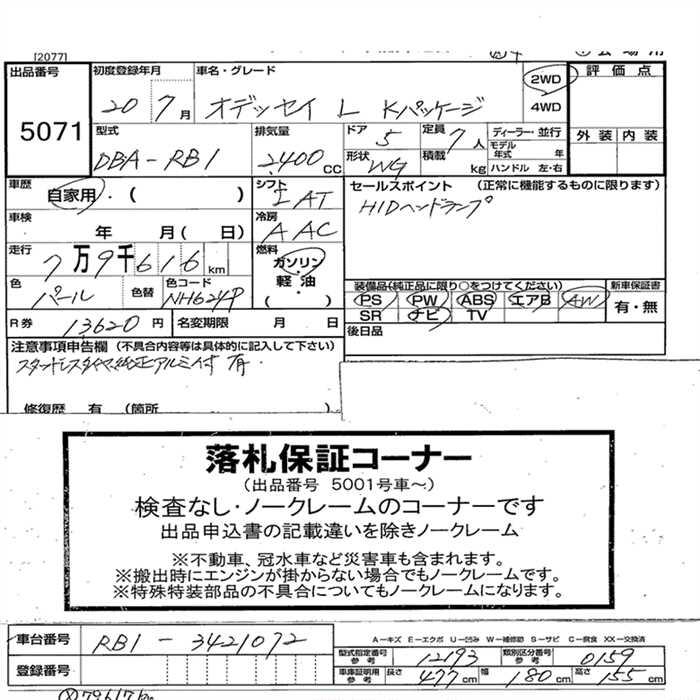 [2077]
出品番号 5071
初度登録年月 20 7月
車名・グレード オデッセイ L Kパッケージ
2WD
4WD
評価点
外装 内装
型式 DBA-RB1
排気量 2400 CC
ドア 5
定員 7人
形状 WG
積載 kg
ディーラー・並行
モデル年式 年
ハンドル 左・右
車歴 自家用・( )
シフト IAT
セールスポイント (正常に機能するものに限ります)
HIDヘッドランプ
車検 年 月( 日)
冷房 AAC
走行 7万9千616km
燃料 ガソリン・軽油・( )
色 パール
色替
色コード NH624P
装備品(純正品に限り○をつけてください)
PS PW ABS エアB AW
SR ナビ TV
新車保証書
有・無
R券 13620円
名変期限 月 日
後日品
注意事項申告欄(不具合内容等は具体的に記入して下さい)
スタッドレスタイヤ純正アルミ付 有
修復歴 有 (箇所
落札保証コーナー
(出品番号 5001号車~)
検査なし・ノークレームのコーナーです
出品申込書の記載違いを除きノークレーム
※不動車、冠水車など災害車も含まれます。
※搬出時にエンジンが掛からない場合でもノークレームです。
※特殊特装部品の不具合についてもノークレームになります。
車台番号 RB1-3421072
A-キズ E-エクボ U-凹み W-補修跡 S-サビ C-腐食 XX-交換済
型式指定番号 参考 12193
類別区分番号 参考 0159
登録番号
車庫証明用 参考 長さ 477cm 幅 180cm 高さ 155cm